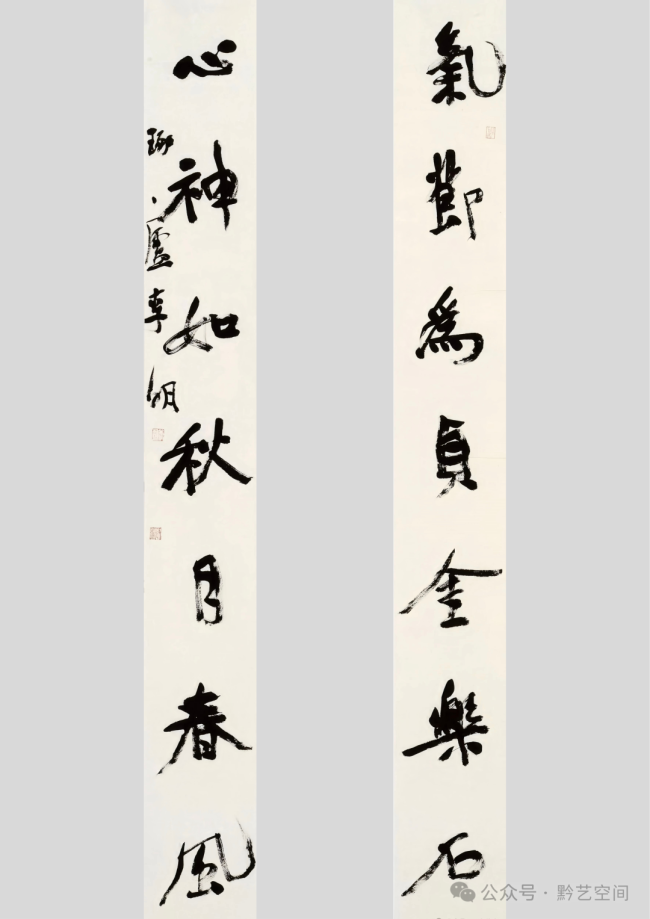 氣節爲貞金樂石
心神如秋月春風
琢盧李明
公众号·黔艺空间